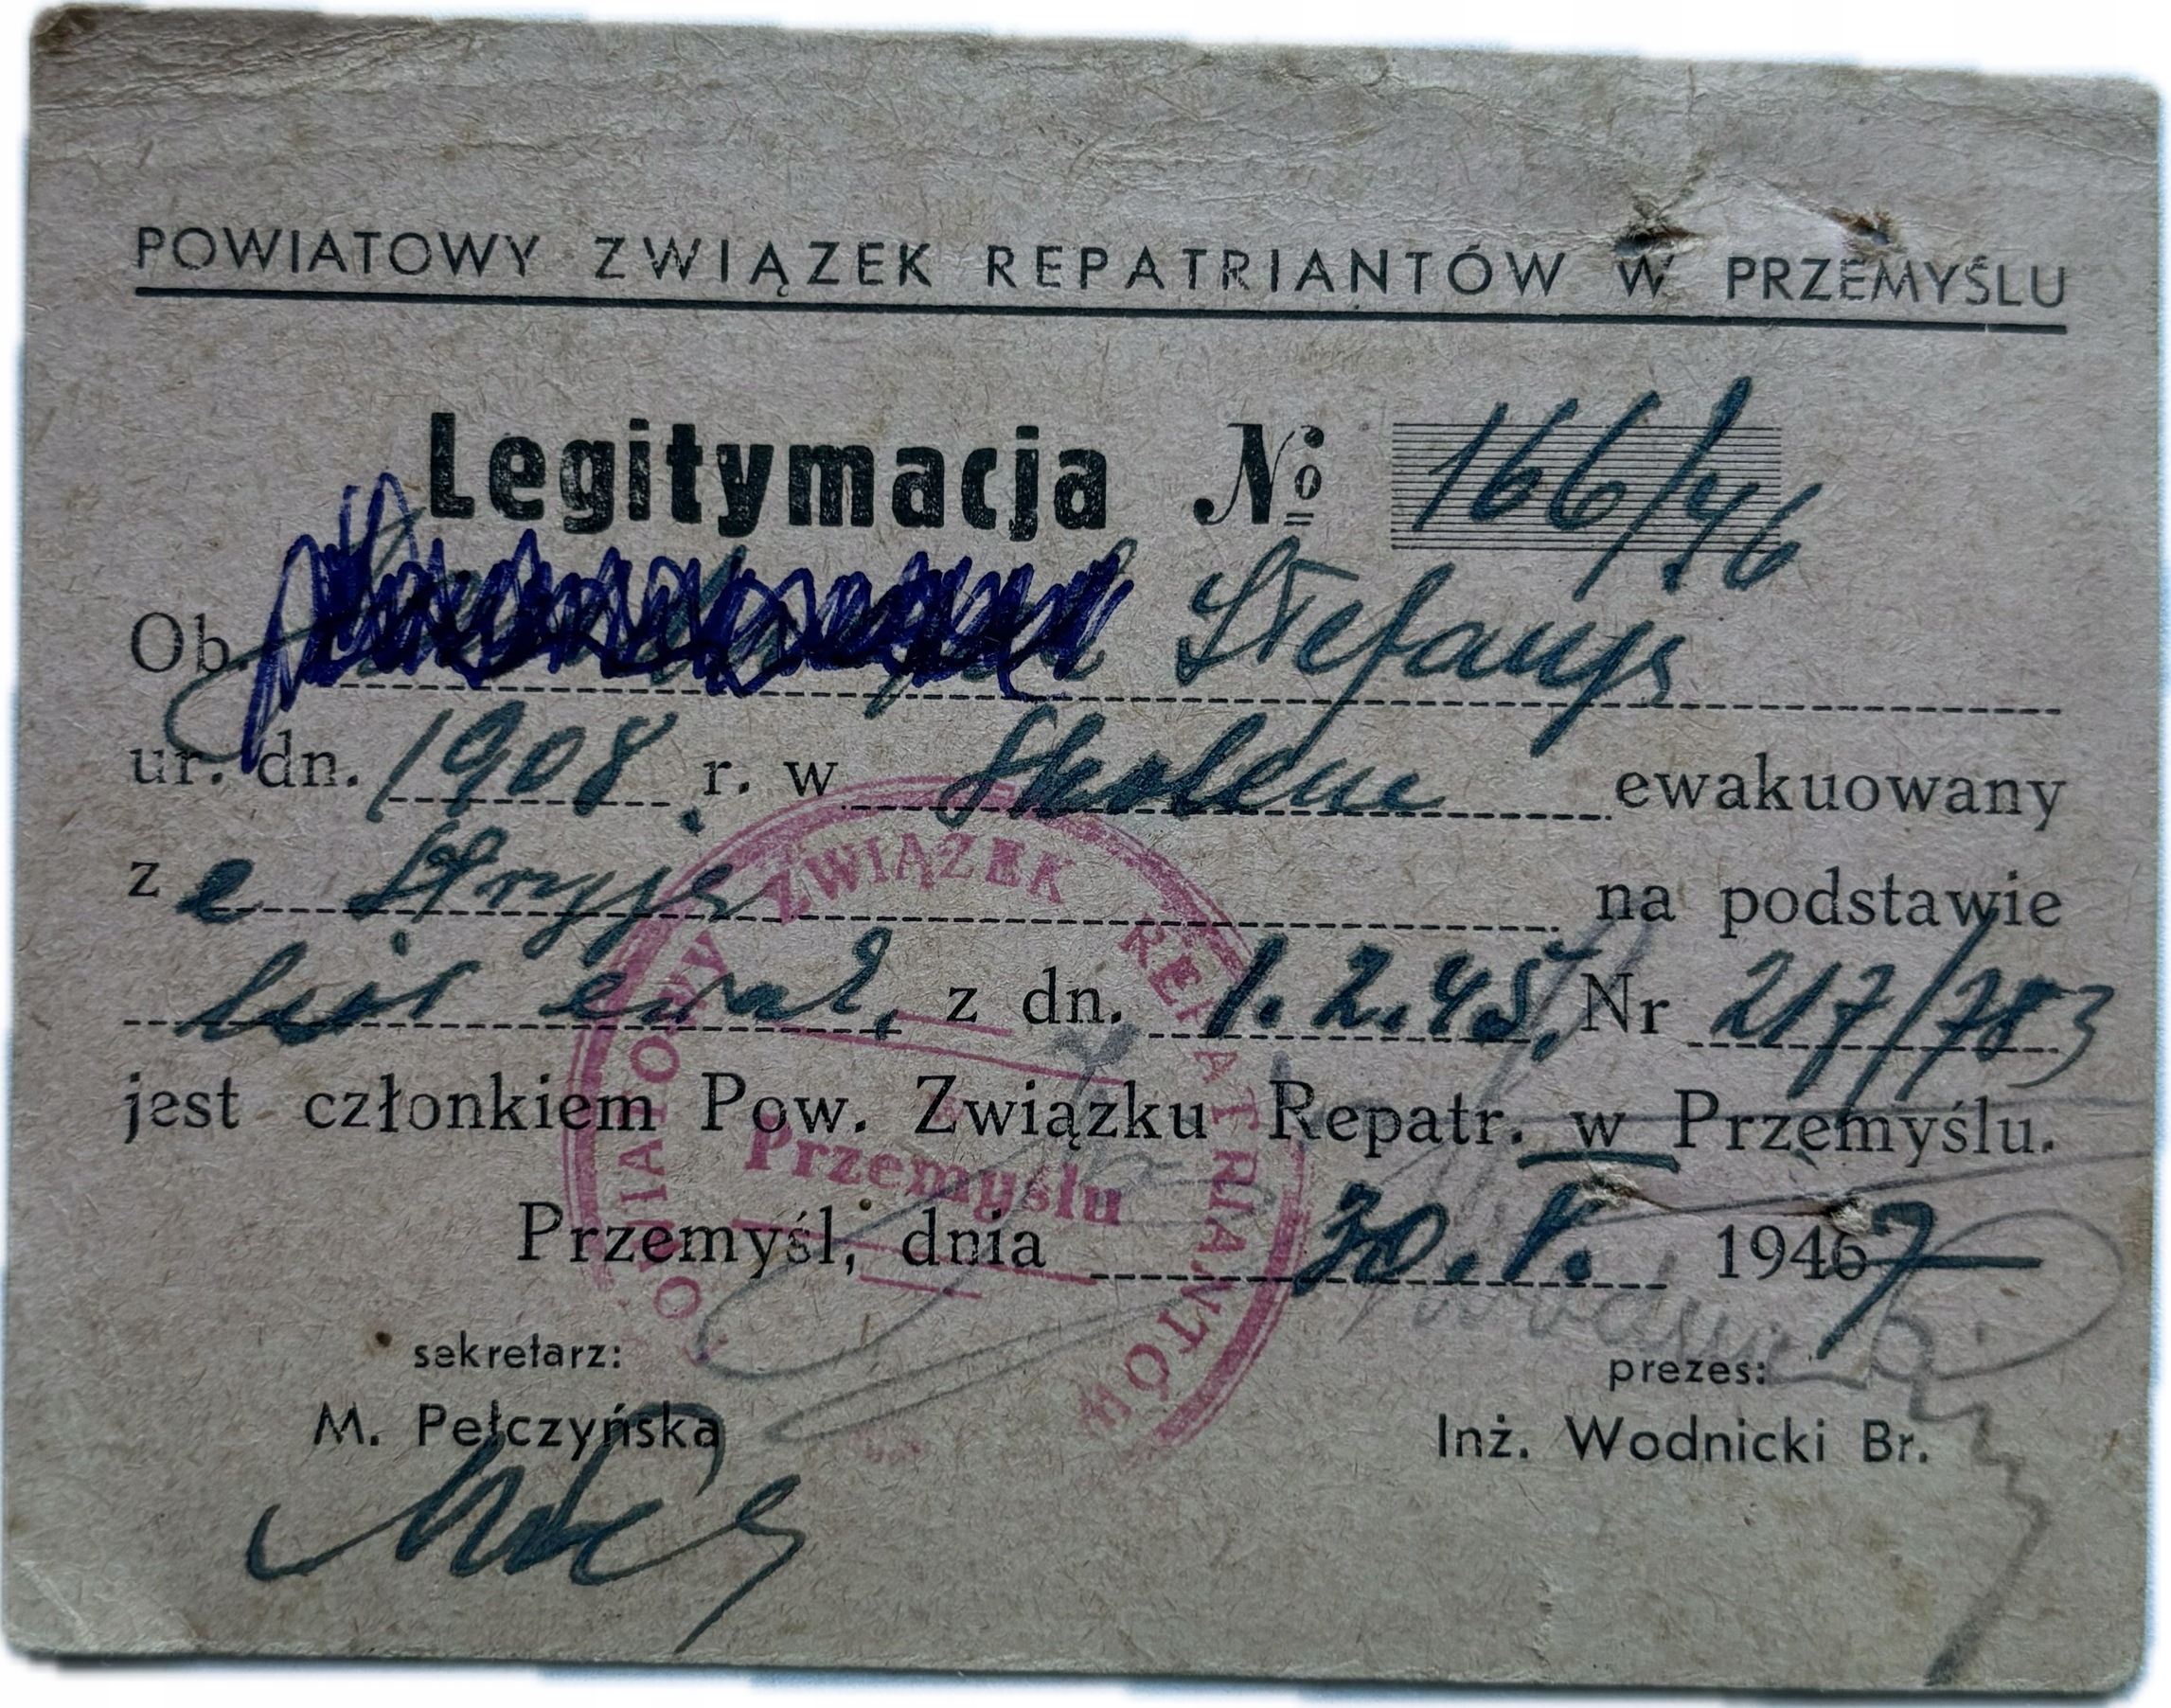 POWIATOWY ZWIĄZEK REPATRIANTÓW W PRZEMYŚLU
Legitymacja № 166/46
Ob. Stefanja
ur. dn. 1908 r. w Skolem ewakuowany
z e Stryja na podstawie
list ewak, z dn. 1.2.45, Nr 217/783
jest członkiem Pow. Związku Repatr. w Przemyślu.
Przemyśl, dnia 30.V. 1946 7
sekretarz:
prezes:
M. Pełczyńska
Inż. Wodnicki Br.
POWIATOWY ZWIĄZEK REPATRIANTÓW
w
Przemyślu